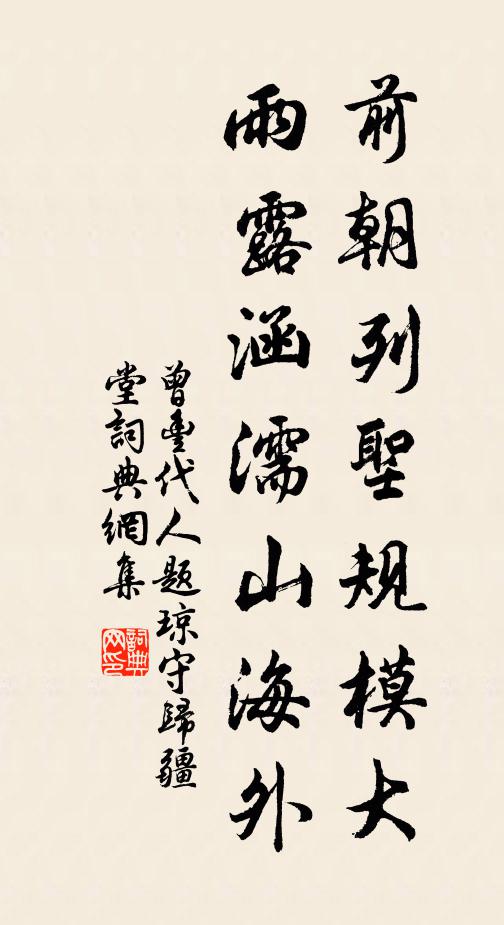 前朝列聖規模大
雨露涵濡山海外
曾豊代人題琼守歸疆
堂詞典網集
詞典网印